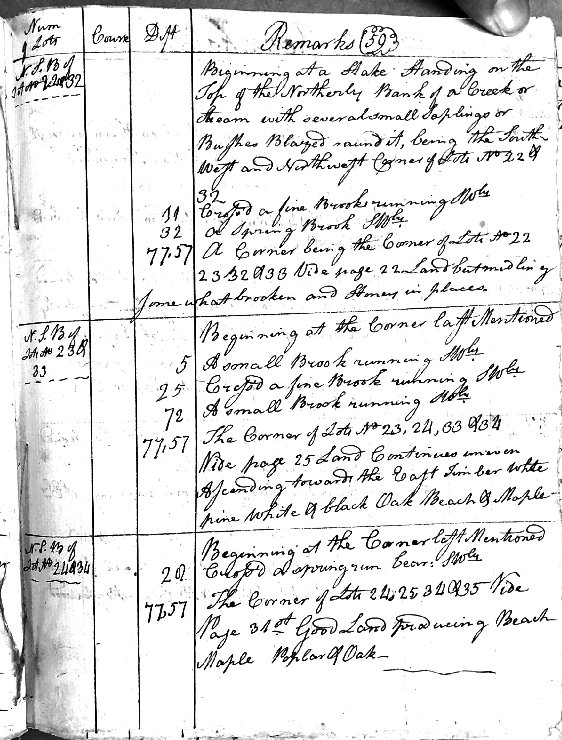 Num
of Lots Course Dist Remarks (39)
N. S. B of
Lots No 22 & 32
Beginning at a Stake Standing on the
Top of the Northerly Bank of a Creek or
Stream with several small Saplings or
Bushes Blazed round it, being the South
West and Northwest Corner of Lots No 22 &
32
31 Cross'd a fine Brook running SWly
32 a Spring Brook SWly
77,57 A Corner being the Corner of Lots No 22
23 32 & 33 Vide page 22 Land but midling
some what brooken and Stoney in places
N. S. B of
Lots No 23 &
33
Beginning at the Corner last Mentioned
5 A small Brook running SWly
25 Cross'd a fine Brook running SWly
72 A small Brook running SWly
77,57 The Corner of Lots No 23, 24, 33 & 34
Vide page 25 Land Continues uneven
Ascending towards the East Timber white
pine white & black Oak Beach & Maple
N. S. B of
Lots No 24 & 34
Beginning at the Corner last Mentioned
20 Cross'd a spring run bear. SWly
77,57 The Corner of Lots 24, 25 34 & 35 Vide
Page 31st Good Land producing Beach
Maple Poplar & Oak